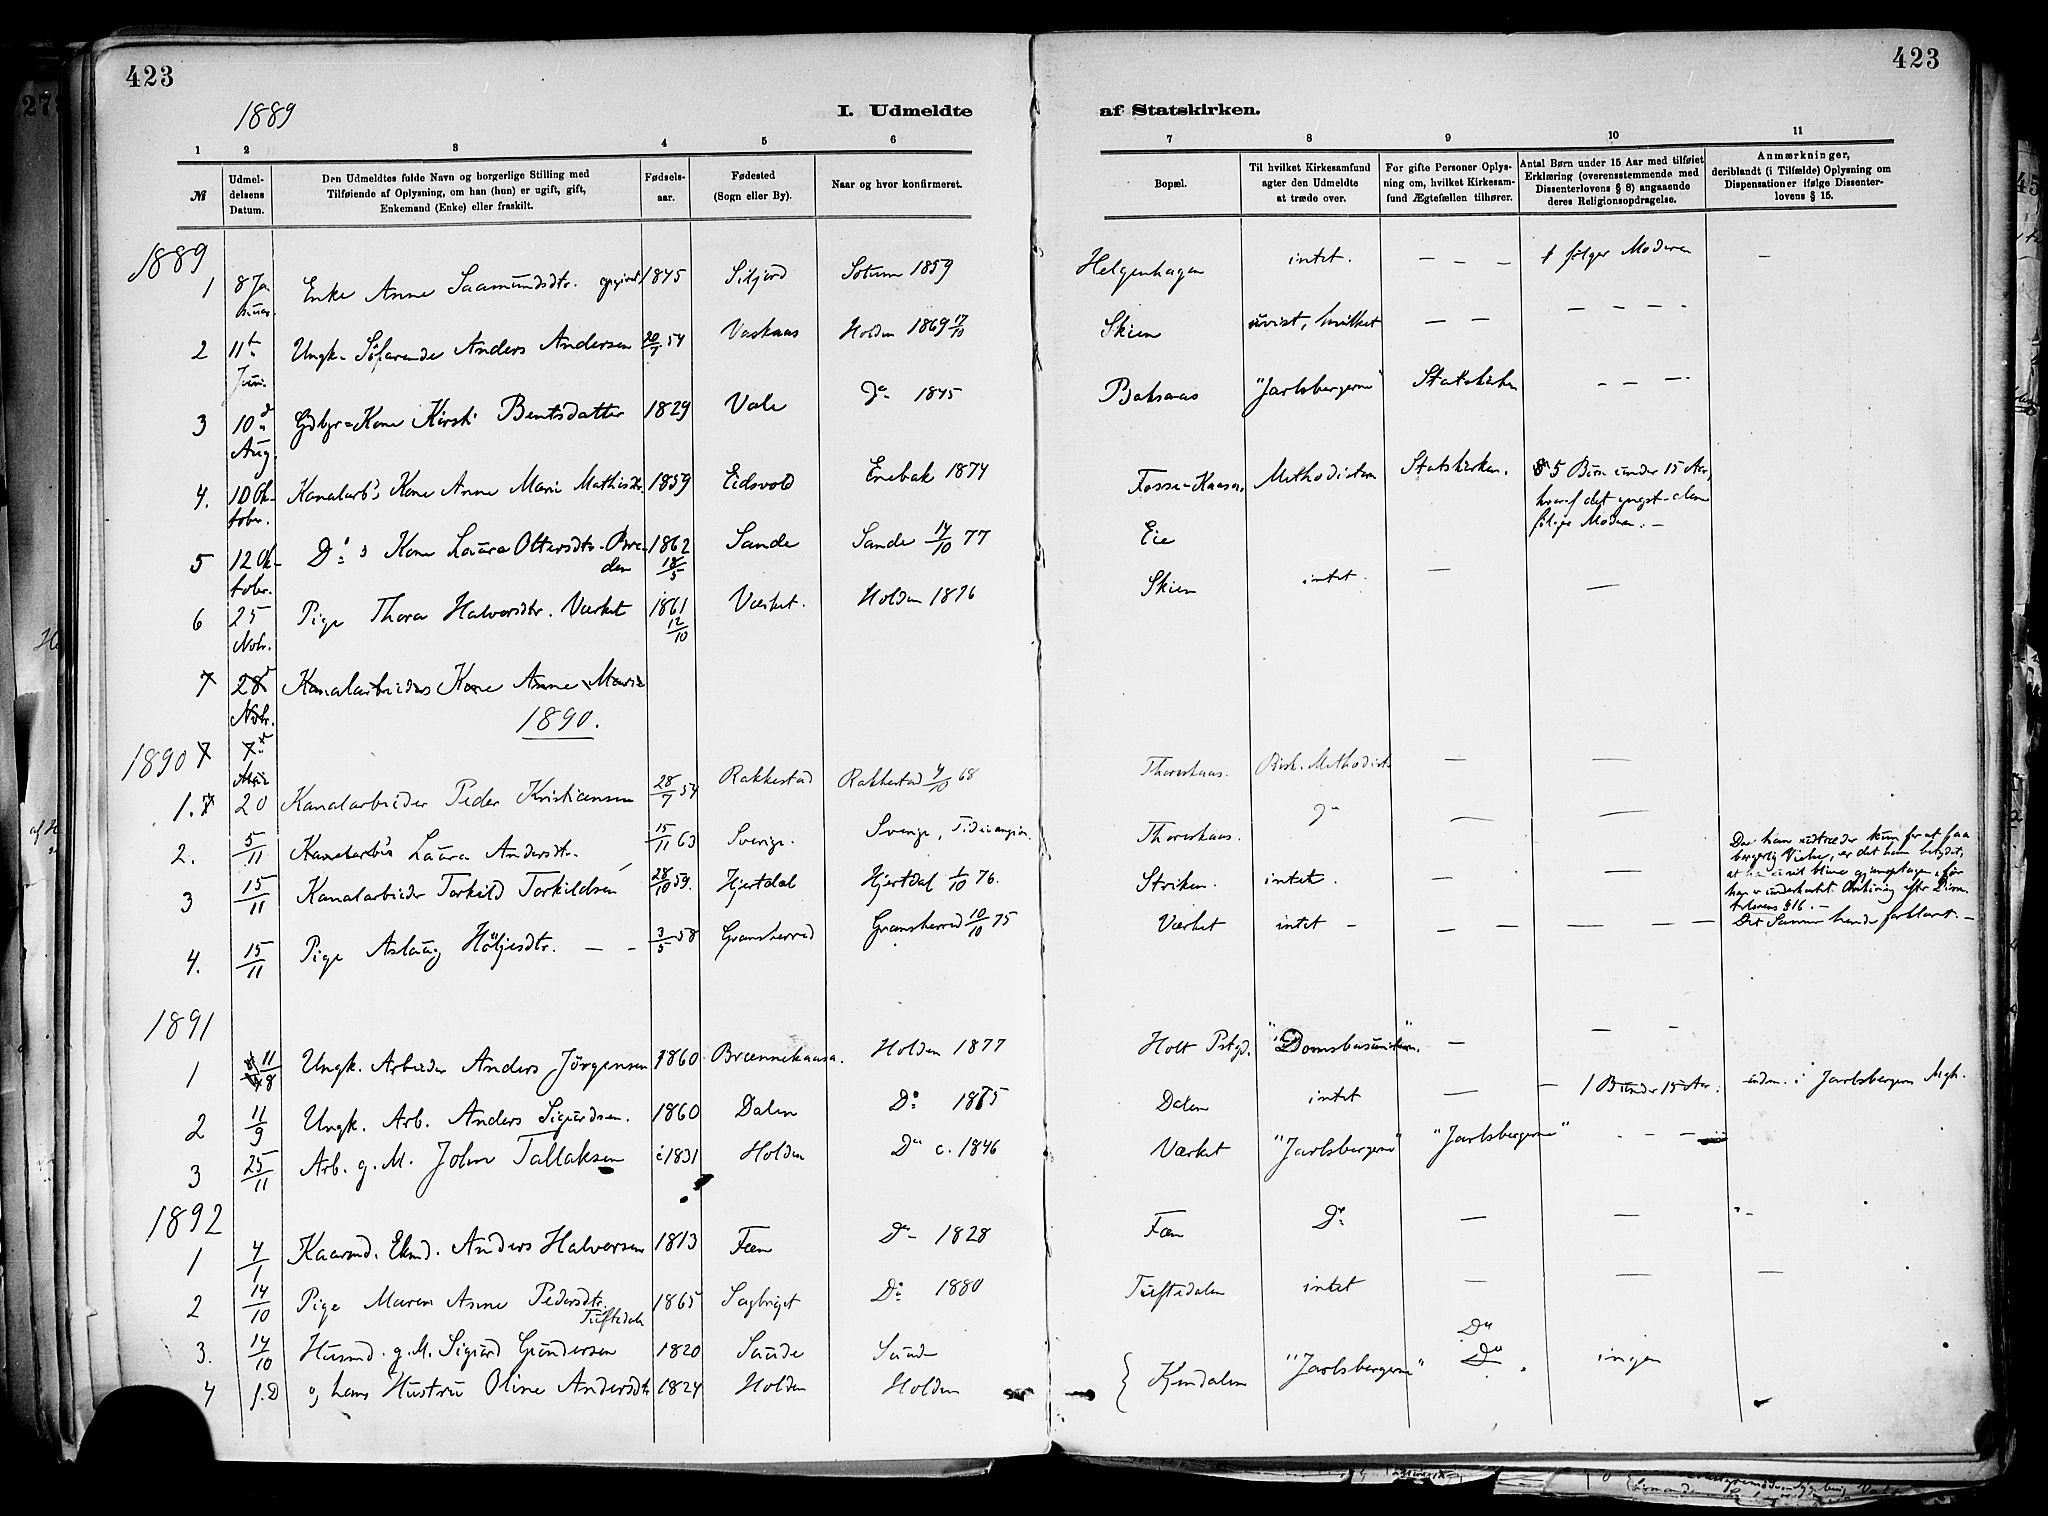 423
423
1889
I. Udmeldte af Statskirken.
1 2 3 4 5 6 7 8 9 10 11
№
Udmeldelsens Datum.
Den Udmeldtes fulde Navn og borgerlige Stilling med
Tilføiende af Oplysning, om han (hun) er ugift, gift,
Enkemand (Enke) eller fraskilt.
Fødselsaar.
Fødested
(Sogn eller By).
Naar og hvor konfirmeret.
Bopæl.
Til hvilket Kirkesamfund
agter den Udmeldte
at træde over.
For gifte Personer Oplys-
ning om, hvilket Kirkesam-
fund Ægtefællen tilhører.
Antal Børn under 15 Aar med tilføiet
Erklæring (overensstemmende med
Dissenterlovens § 8) angaaende
deres Religionsopdragelse.
Anmærkninger,
deriblandt (i Tilfælde) Oplysning om
Dispensationer ifølge Dissenter-
lovens § 15.
1889
1 8 Januar Enke Anne Saamundsdtr. 1845 Siljord 1859 Helgenhagen intet. — — — 1 følger Moderen —
2 11te Juni Ungk. Søfarende Anders Andersen 20/7 54 Vaskaas Holden 1869 17/10 Skien uvist, hvilket — — — — — —
3 10d Aug. Gdbr=Kone Kirsti Bentsdatter 1829 Vale Do 1845 Baksaas "Jarlsbergerne" Statskirken — — —
4. 10 Oktober. Kanalarb's Kone Anne Marie Mathisdtr. 1859 Eidsvold Enebak 1874 Fosse-Kaasa. Methodisten Statskirken. 5 Børn under 15 Aar,
hvoraf det yngste
følger Moderen. —
5 12 Oktober. Do's Kone Laura Ottersdtr. 1862 18/5 Sande Sande 14/10 77 Eie
6 25 Novbr. Pige Thora Halvorsdtr. Værket 1861 12/10 Værket. Holden 1876 Skien intet. — —
7 28 Novbr. Kanalarbeiders Kone Anne Marie
1890.
1890 7 7de Mai
1. 20 Kanalarbeider Peder Kristiansen 28/7 54 Rakkestad Rakkestad 4/10 68 Thorskaas. Bisk. Methodist. — —
2. 5/11 Kanalarb's Laura Andersdtr. 15/11 63 Sverige. Sverige, Thorskaas. Do — —
3 15/11 Kanalarbeider Torkild Torkildsen 28/10 59. Hjertdal Hjertdal 1/10 76. Striken. intet. — —
Da han udtræder kun for at faa
borgerlig Vielse, er det ham betydet,
§ 16. —
4. 15/11 Pige Aslaug Høljesdtr. — — 3/5 58 Gransherred Gransherred 10/10 75 Værket intet — — — — — — Det Samme hende forklaret. —
1891
1 11/8 Ungk. Arbeider Anders Jørgensen 1860 Brænnekaasa. Holden 1877 Holt Pstgd. "Domsbasunisten." — — —
2 11/9 Ungk. Arb. Anders Sigurdsen. 1860 Dalen Do 1875 Dalen intet — — 1 B under 15 Aar. udm. i Jarlsbergern Mgh.
3 25/11 Arb. g. M. John Tallaksen 1831 Holden Do c. 1846 Værket "Jarlsbergerne" "Jarlsbergerne" — — —
1892
1 4/1 Kaarmd. Ekmd. Anders Halvorsen 1813 Fæn Do 1828 Fæn Do — —
2 14/10 Pige Maren Anne Pedersdtr. Tuftedalen 1865 Sagbriget Do 1880 Tuftedalen intet — — —
3. 14/10 Husmd. g. M. Sigurd Gundersen 1820 Saude Saude Do
4 s. D og hans Hustru Oline Andersdtr 1824 Holden Holden } Kjendalen "Jarlsbergerne" Do. ingen